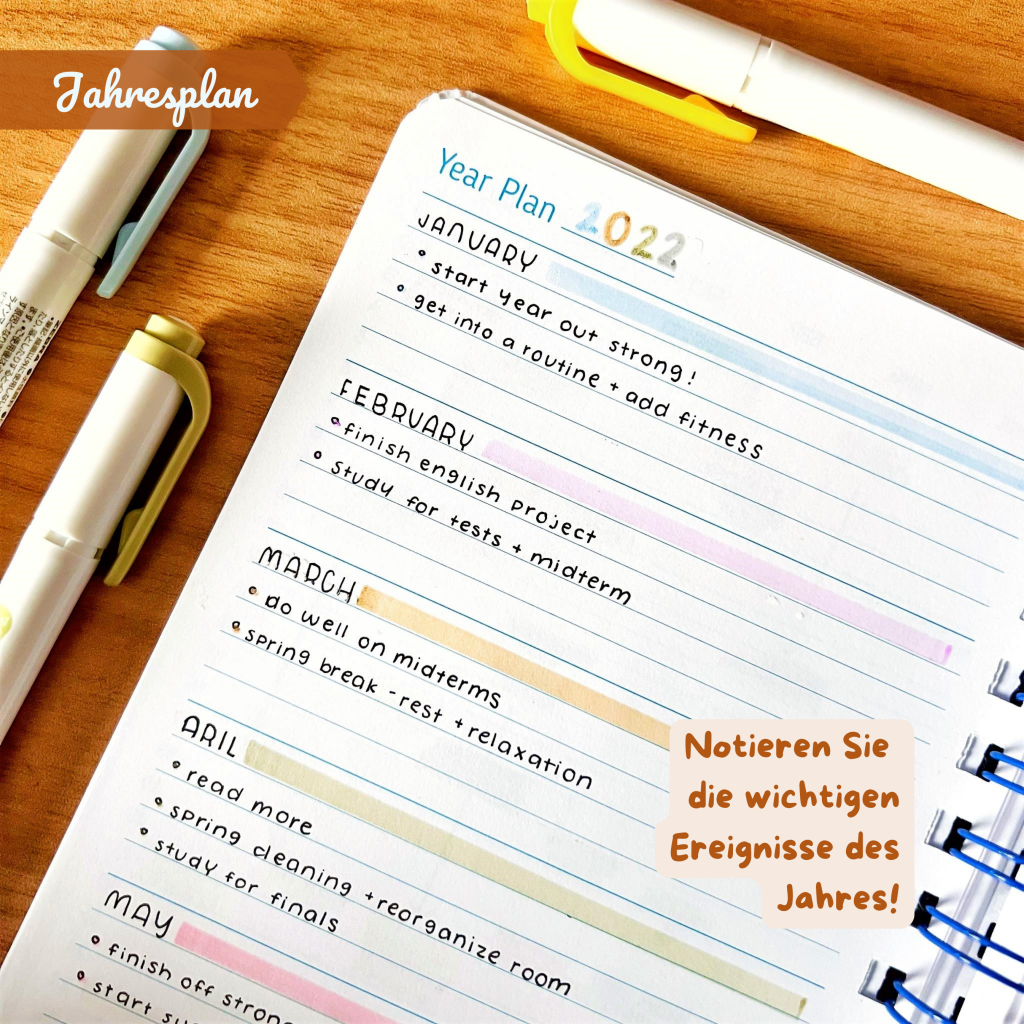 Jahresplan
Year Plan 2022
JANUARY
• start year out strong!
• get into a routine + add fitness
FEBRUARY
• finish english project
• study for tests + midterm
MARCH
• do well on midterms
• spring break - rest + relaxation
ARIL
• read more
• spring cleaning + reorganize room
• study for finals
MAY
• finish off stron
• start su
Notieren Sie
die wichtigen
Ereignisse des
Jahres!